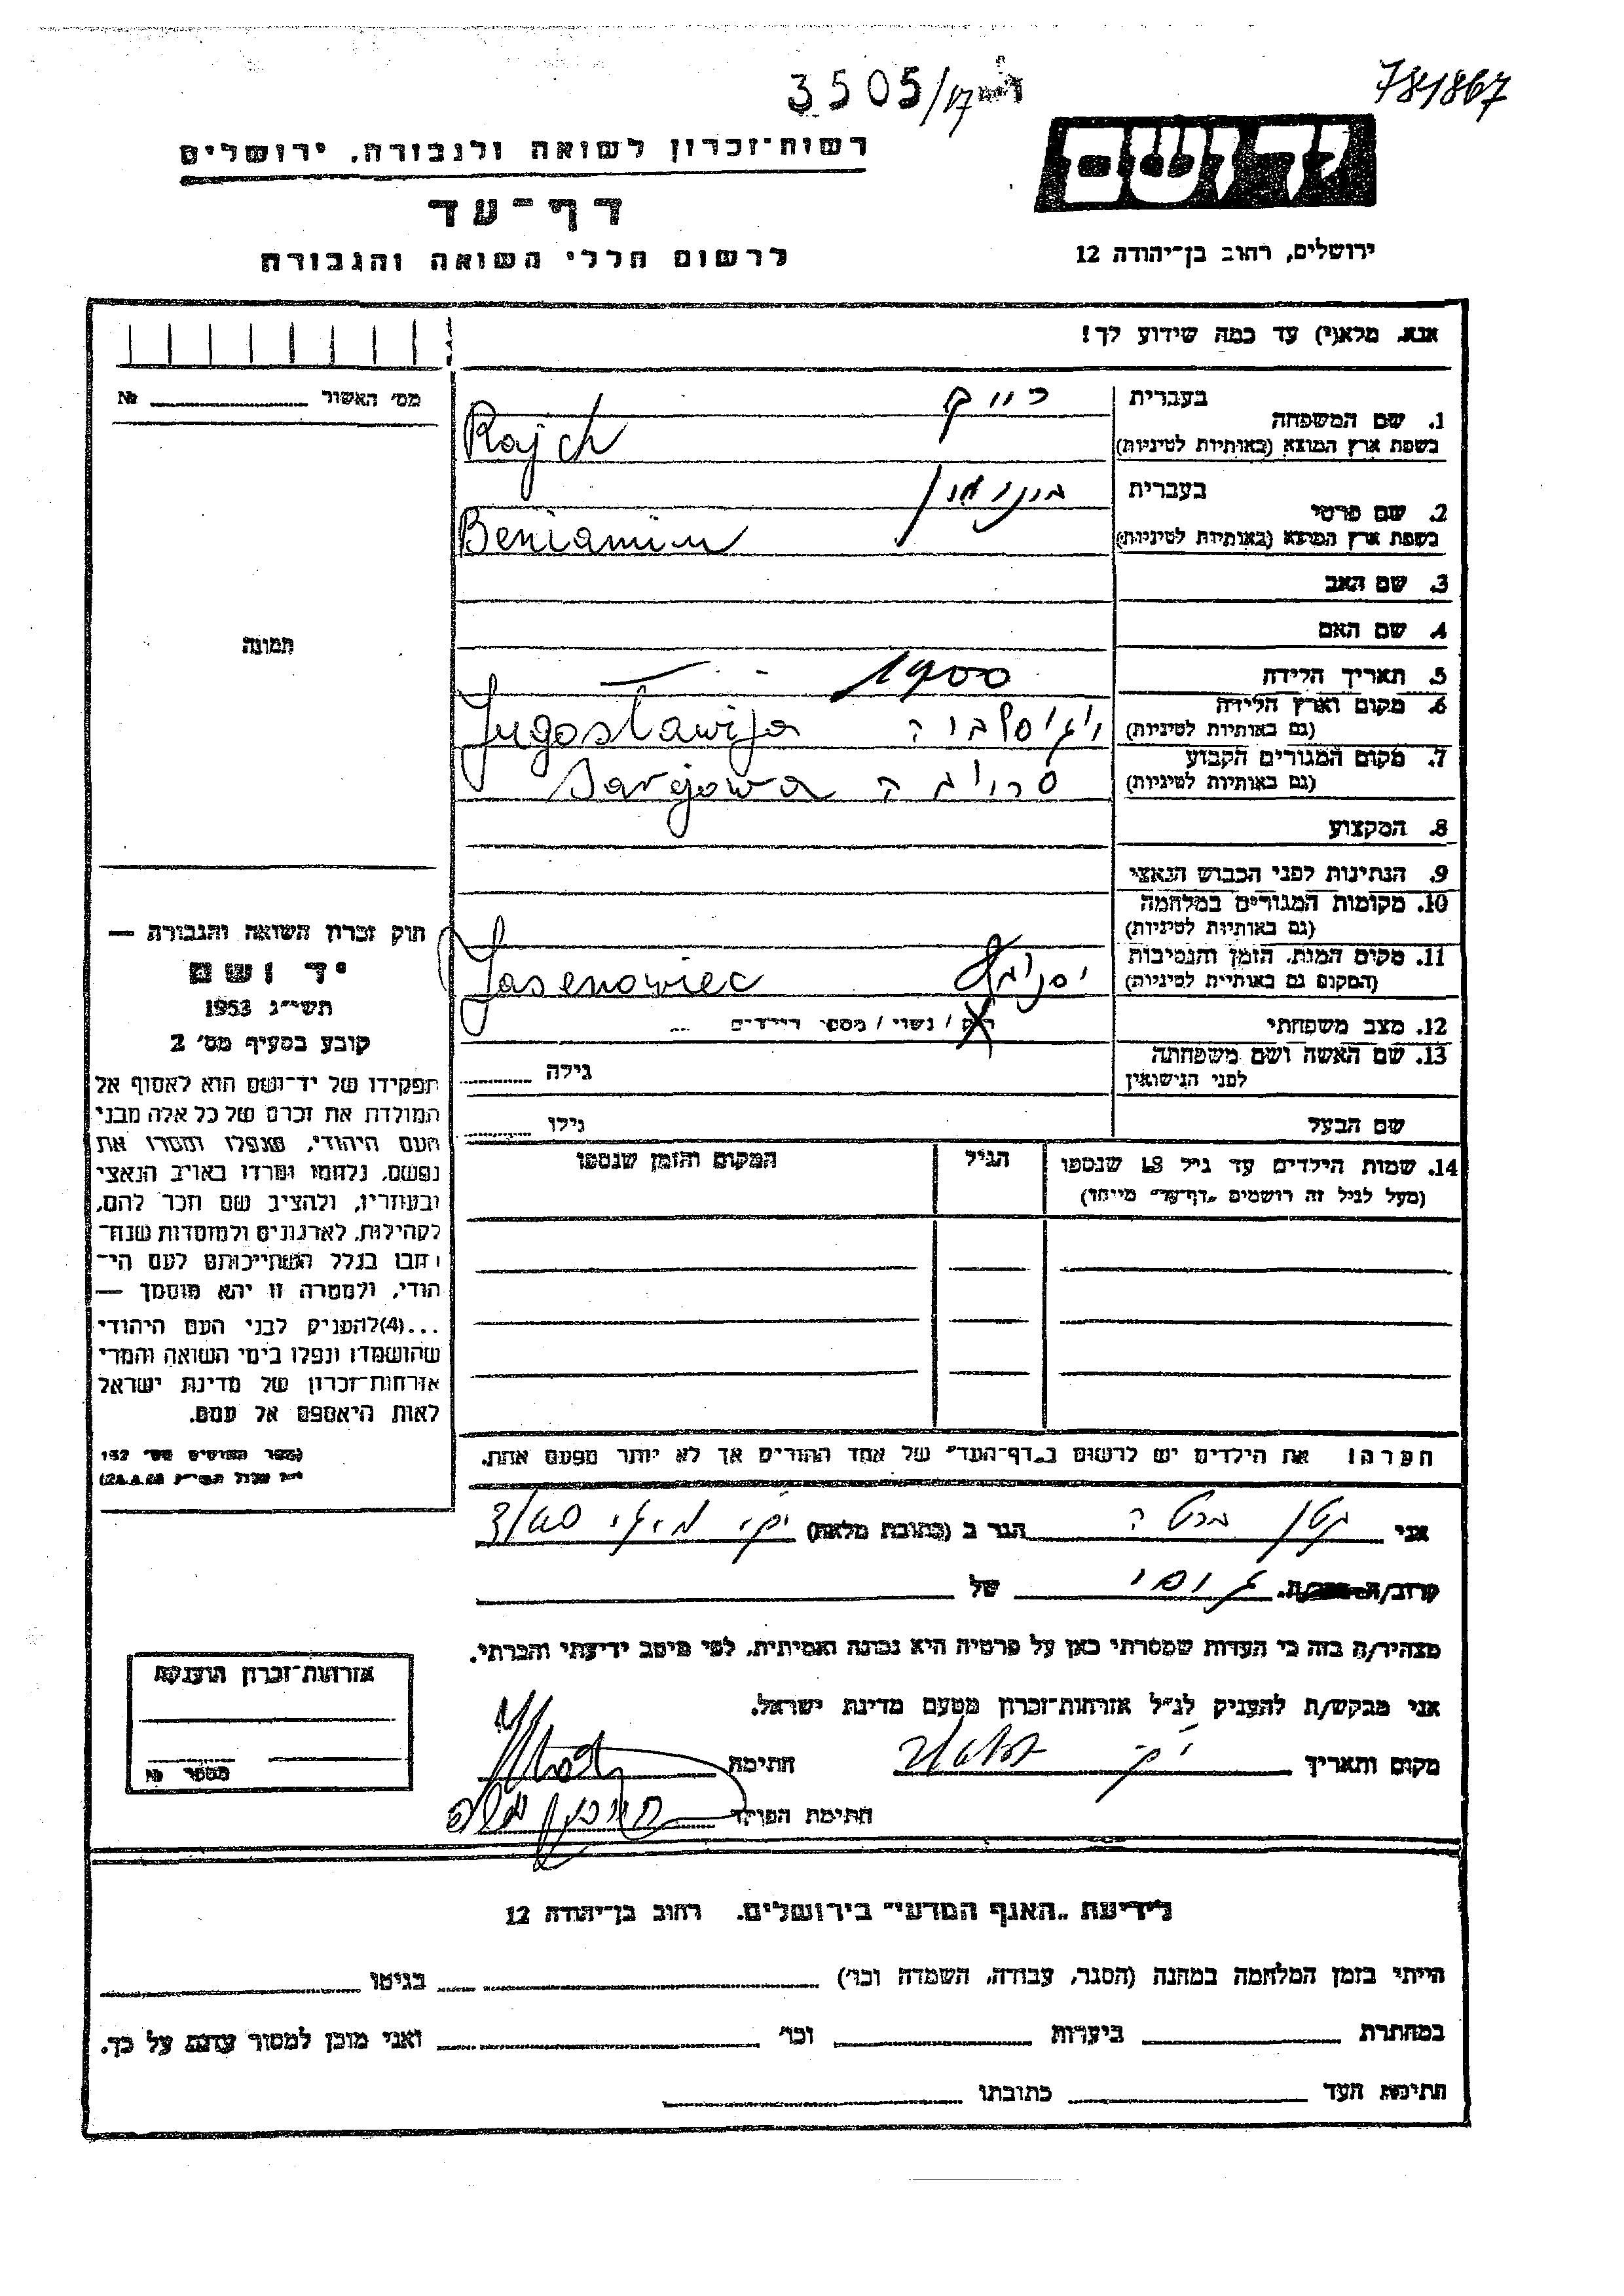 3505/17
781867
יד ושם
רשות־זכרון לשואה ולגבורה, ירושלים
דף־עד
לרשום חללי השואה והגבורה
ירושלים, רחוב בן־יהודה 12
אנא, מלא(י) עד כמה שידוע לך!
מס׳ האשור № 
בעברית
1. שם המשפחה
בשפת ארץ המוצא (באותיות לטיניות) Rajch
בעברית בנימין
2. שם פרטי
בשפת ארץ המוצא (באותיות לטיניות) Beniamin
3. שם האב
4. שם האם
תמונה
5. תאריך הלידה 1900
6. מקום וארץ הלידה
(גם באותיות לטיניות) Jugoslawija
7. מקום המגורים הקבוע
(גם באותיות לטיניות) Sarjewa
8. המקצוע
9. הנתינות לפני הכבוש הנאצי
10. מקומות המגורים במלחמה
(גם באותיות לטיניות)
11. מקום המות, הזמן והנסיבות
(המקום גם באותיות לטיניות) Jasenowiec
12. מצב משפחתי רוק / נשוי / מספר הילדים
13. שם האשה ושם משפחתה
לפני הנישואין גילה
שם הבעל גילו
חוק זכרון השואה והגבורה —
יד ושם
תשי״ג 1953
קובע בסעיף מס׳ 2
תפקידו של יד־ושם הוא לאסוף אל
המולדת את זכרם של כל אלה מבני
העם היהודי, שנפלו ומסרו את
נפשם, נלחמו ומרדו באויב הנאצי
ובעוזריו, ולהציב שם וזכר להם,
לקהילות, לארגונים ולמוסדות שנח־
רבו בגלל השתייכותם לעם הי־
הודי, ולמטרה זו יהא מוסמך —
...(4)להעניק לבני העם היהודי
שהושמדו ונפלו בימי השואה והמרי
אזרחות־זכרון של מדינת ישראל
לאות היאספם אל עמם.
(ספר החוקים מס׳ 132
14. שמות הילדים עד גיל 18 שנספו הגיל המקום והזמן שנספו
(מעל לגיל זה רושמים „דף־עד״ מיוחד)
הערה: את הילדים יש לרשום ב„דף־העד״ של אחד ההורים אך לא יותר מפעם אחת.
אני הגר ב (כתובת מלאה)
קרוב/ה של
מצהיר/ה בזה כי העדות שמסרתי כאן על פרטיה היא נכונה ואמיתית, לפי מיטב ידיעתי והכרתי.
אני מבקש/ת להעניק לנ״ל אזרחות־זכרון מטעם מדינת ישראל.
מקום ותאריך חתימה
חתימת הפוקד
אזרחות־זכרון הוענקה
מספר №
לידיעת „האגף המדעי״ בירושלים, רחוב בן־יהודה 12
הייתי בזמן המלחמה במחנה (הסגר, עבודה, השמדה וכו׳) בגיטו
במחתרת ביערות וכו׳ ואני מוכן למסור עדות על כך.
חתימת העד כתובתו